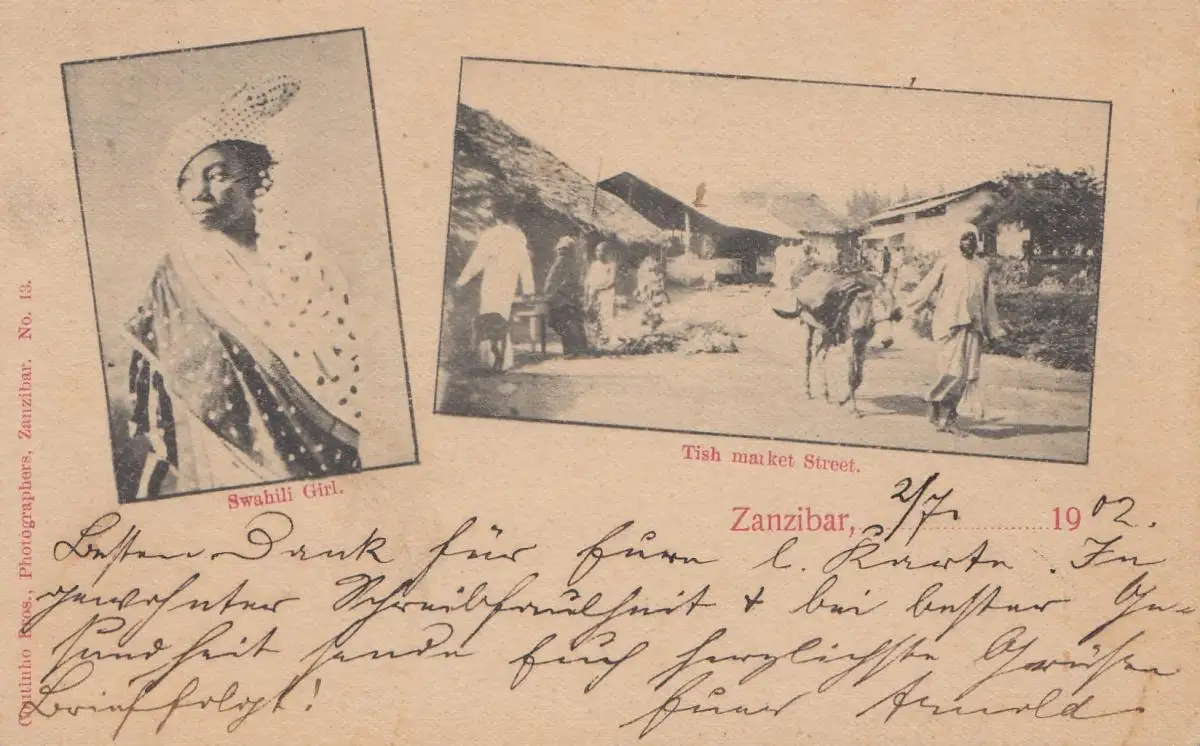 Swahili Girl.
Tish market Street.
Coutinho Bros., Photographers, Zanzibar. No. 13.
Zanzibar, 2/7. 1902.
Besten Dank für Eure l. Karte. In
gewohnter Schreibfaulheit & bei bester Ge-
sundheit sende Euch herzlichste Grüsse
Brief folgt! Euer Arnold